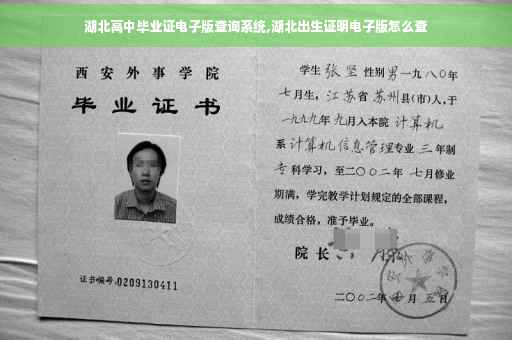 湖北高中毕业证电子版查询系统,湖北出生证明电子版怎么查
西安外事学院
毕业证书
证书编号:0209130411
学生 张坚 性别男 一九八〇年
七月生, 江苏省 苏州县(市)人, 于
一九九九年 九月入本院 计算机
系 计算机信息管理专业 三 年制
专 科学习, 至二〇〇二年 七月修业
期满, 学完教学计划规定的全部课程,
成绩合格, 准予毕业。
院长
二〇〇二年 月五日